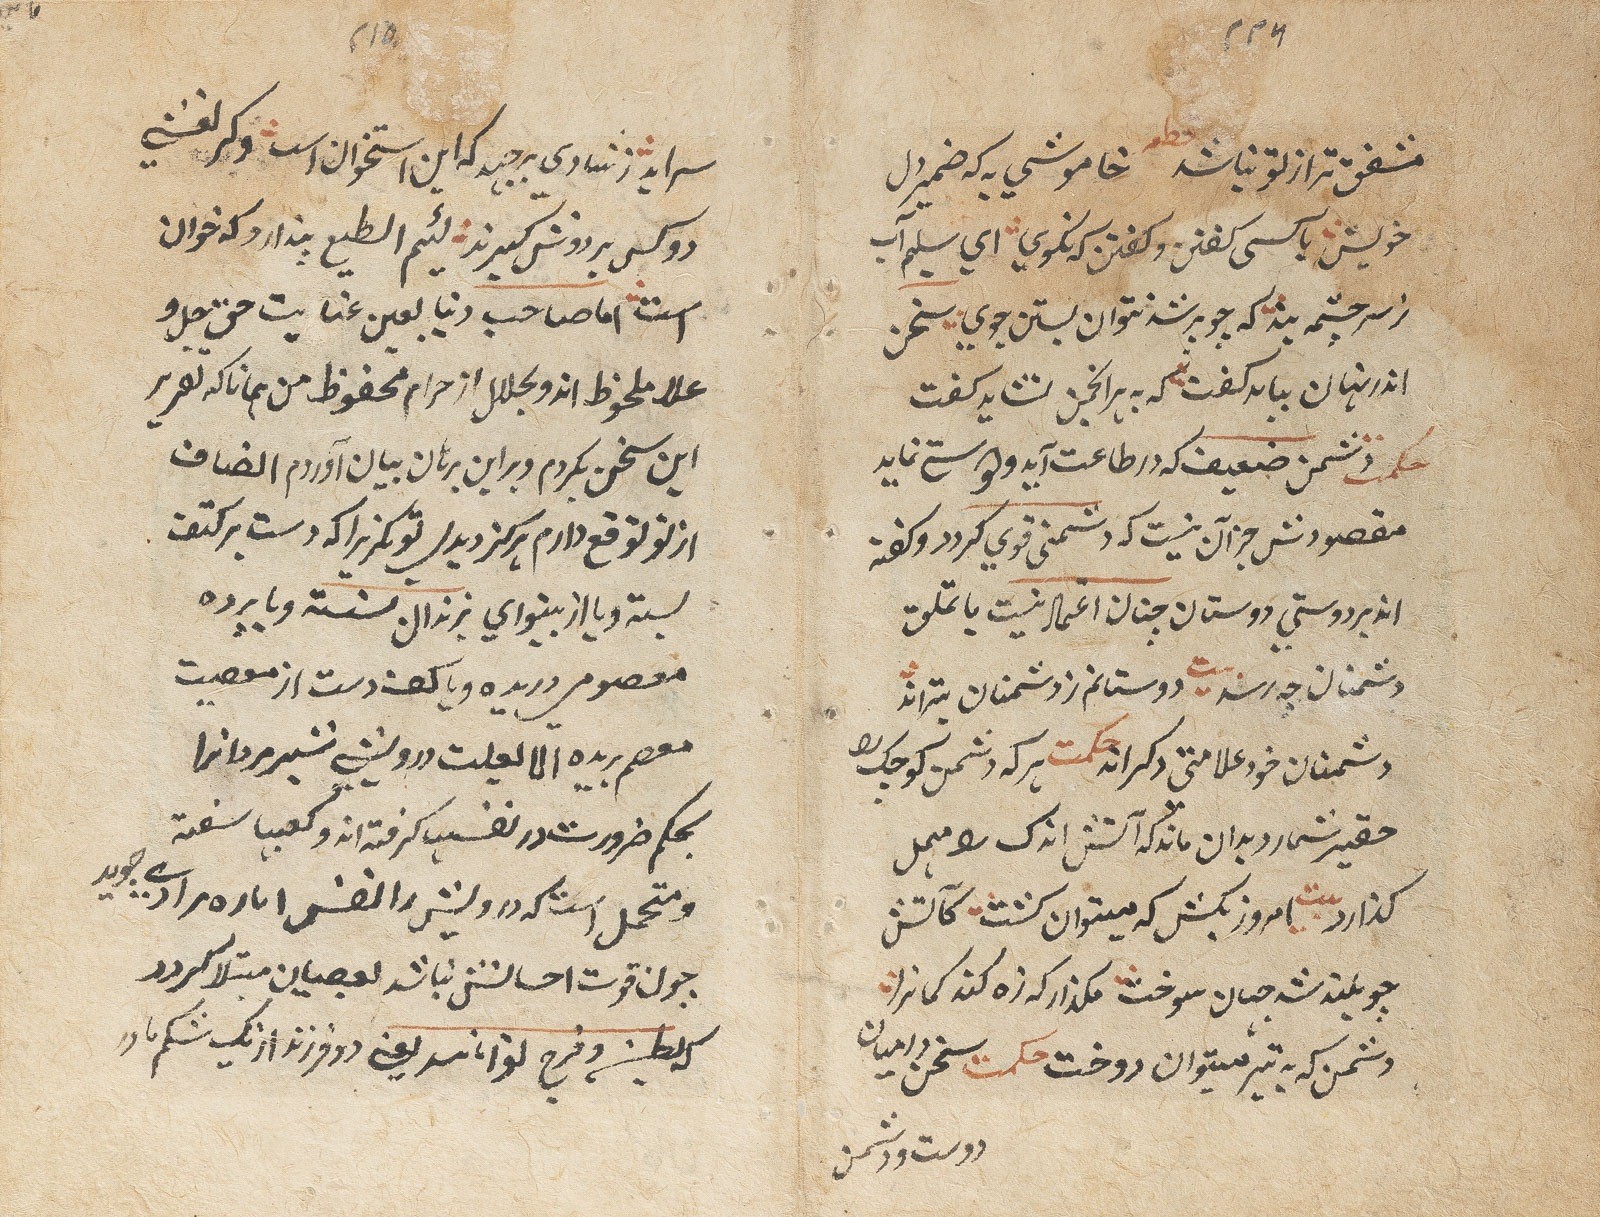 ۲۲۶
مشفق تر از تو نباشد قطعه خاموشی به که ضمیر دل
خویش با کسی گفتن و گفتن که نگوی ای سلیم آب
ز سر چشمه ببند که چو پر شد نتوان بستن جوی سخن
اندر نهان نباید گفت که به هر انجمن نشاید گفت
حکمت دشمن ضعیف که در طاعت آید و دوستی نماید
مقصودش جز آن نیست که دشمنی قوی گردد و گفته
اند بر دوستی دوستان چنان اعتماد نیست یا تملق
دشمنان چه رسد بیت دوستانم ز دشمنان بتراند
دشمنان خود علامتی دگراند حکمت هر که دشمن کوچک را
حقیر شمارد بدان ماند که آتش اندک را مهمل
گذارد بیت امروز بکش که میتوان کشت کآتش
چو بلند شد جهان سوخت مگذار که زه کند کمانرا
دشمن که به تیر میتوان دوخت حکمت سخن در میان
دوست و دشمن
۲۱۵
سر آید ز شادی برجهد که این استخوان است وگر نعشی
دو کس بر دوش گیرند لئیم الطبع پندارد که خوان
است اما صاحب دنیا بعین عنایت حق جل و
علا ملحوظ اند و بحلال از حرام محفوظ من همانا که تقریر
این سخن نکردم و برین برهان بیان آوردم انصاف
از تو توقع دارم هرگز دیدی تو بگزیرا که دست بر کتف
بسته و یا از بینوای بزندان نشسته و یا پرده
معصومی دریده و یا کف دست از معصیت
معصم بریده الا بعلت درویشی شیر مردانرا
بحکم ضرورت در نقبها گرفته اند و کعبها سفته
و محتمل است که درویش را نفس اماره مرادی جوید
چون قوت احسانش نباشد بعصیان مبتلا گردد
که بطن و فرج توامانند یعنی دو فرزند از یک شکم مادر